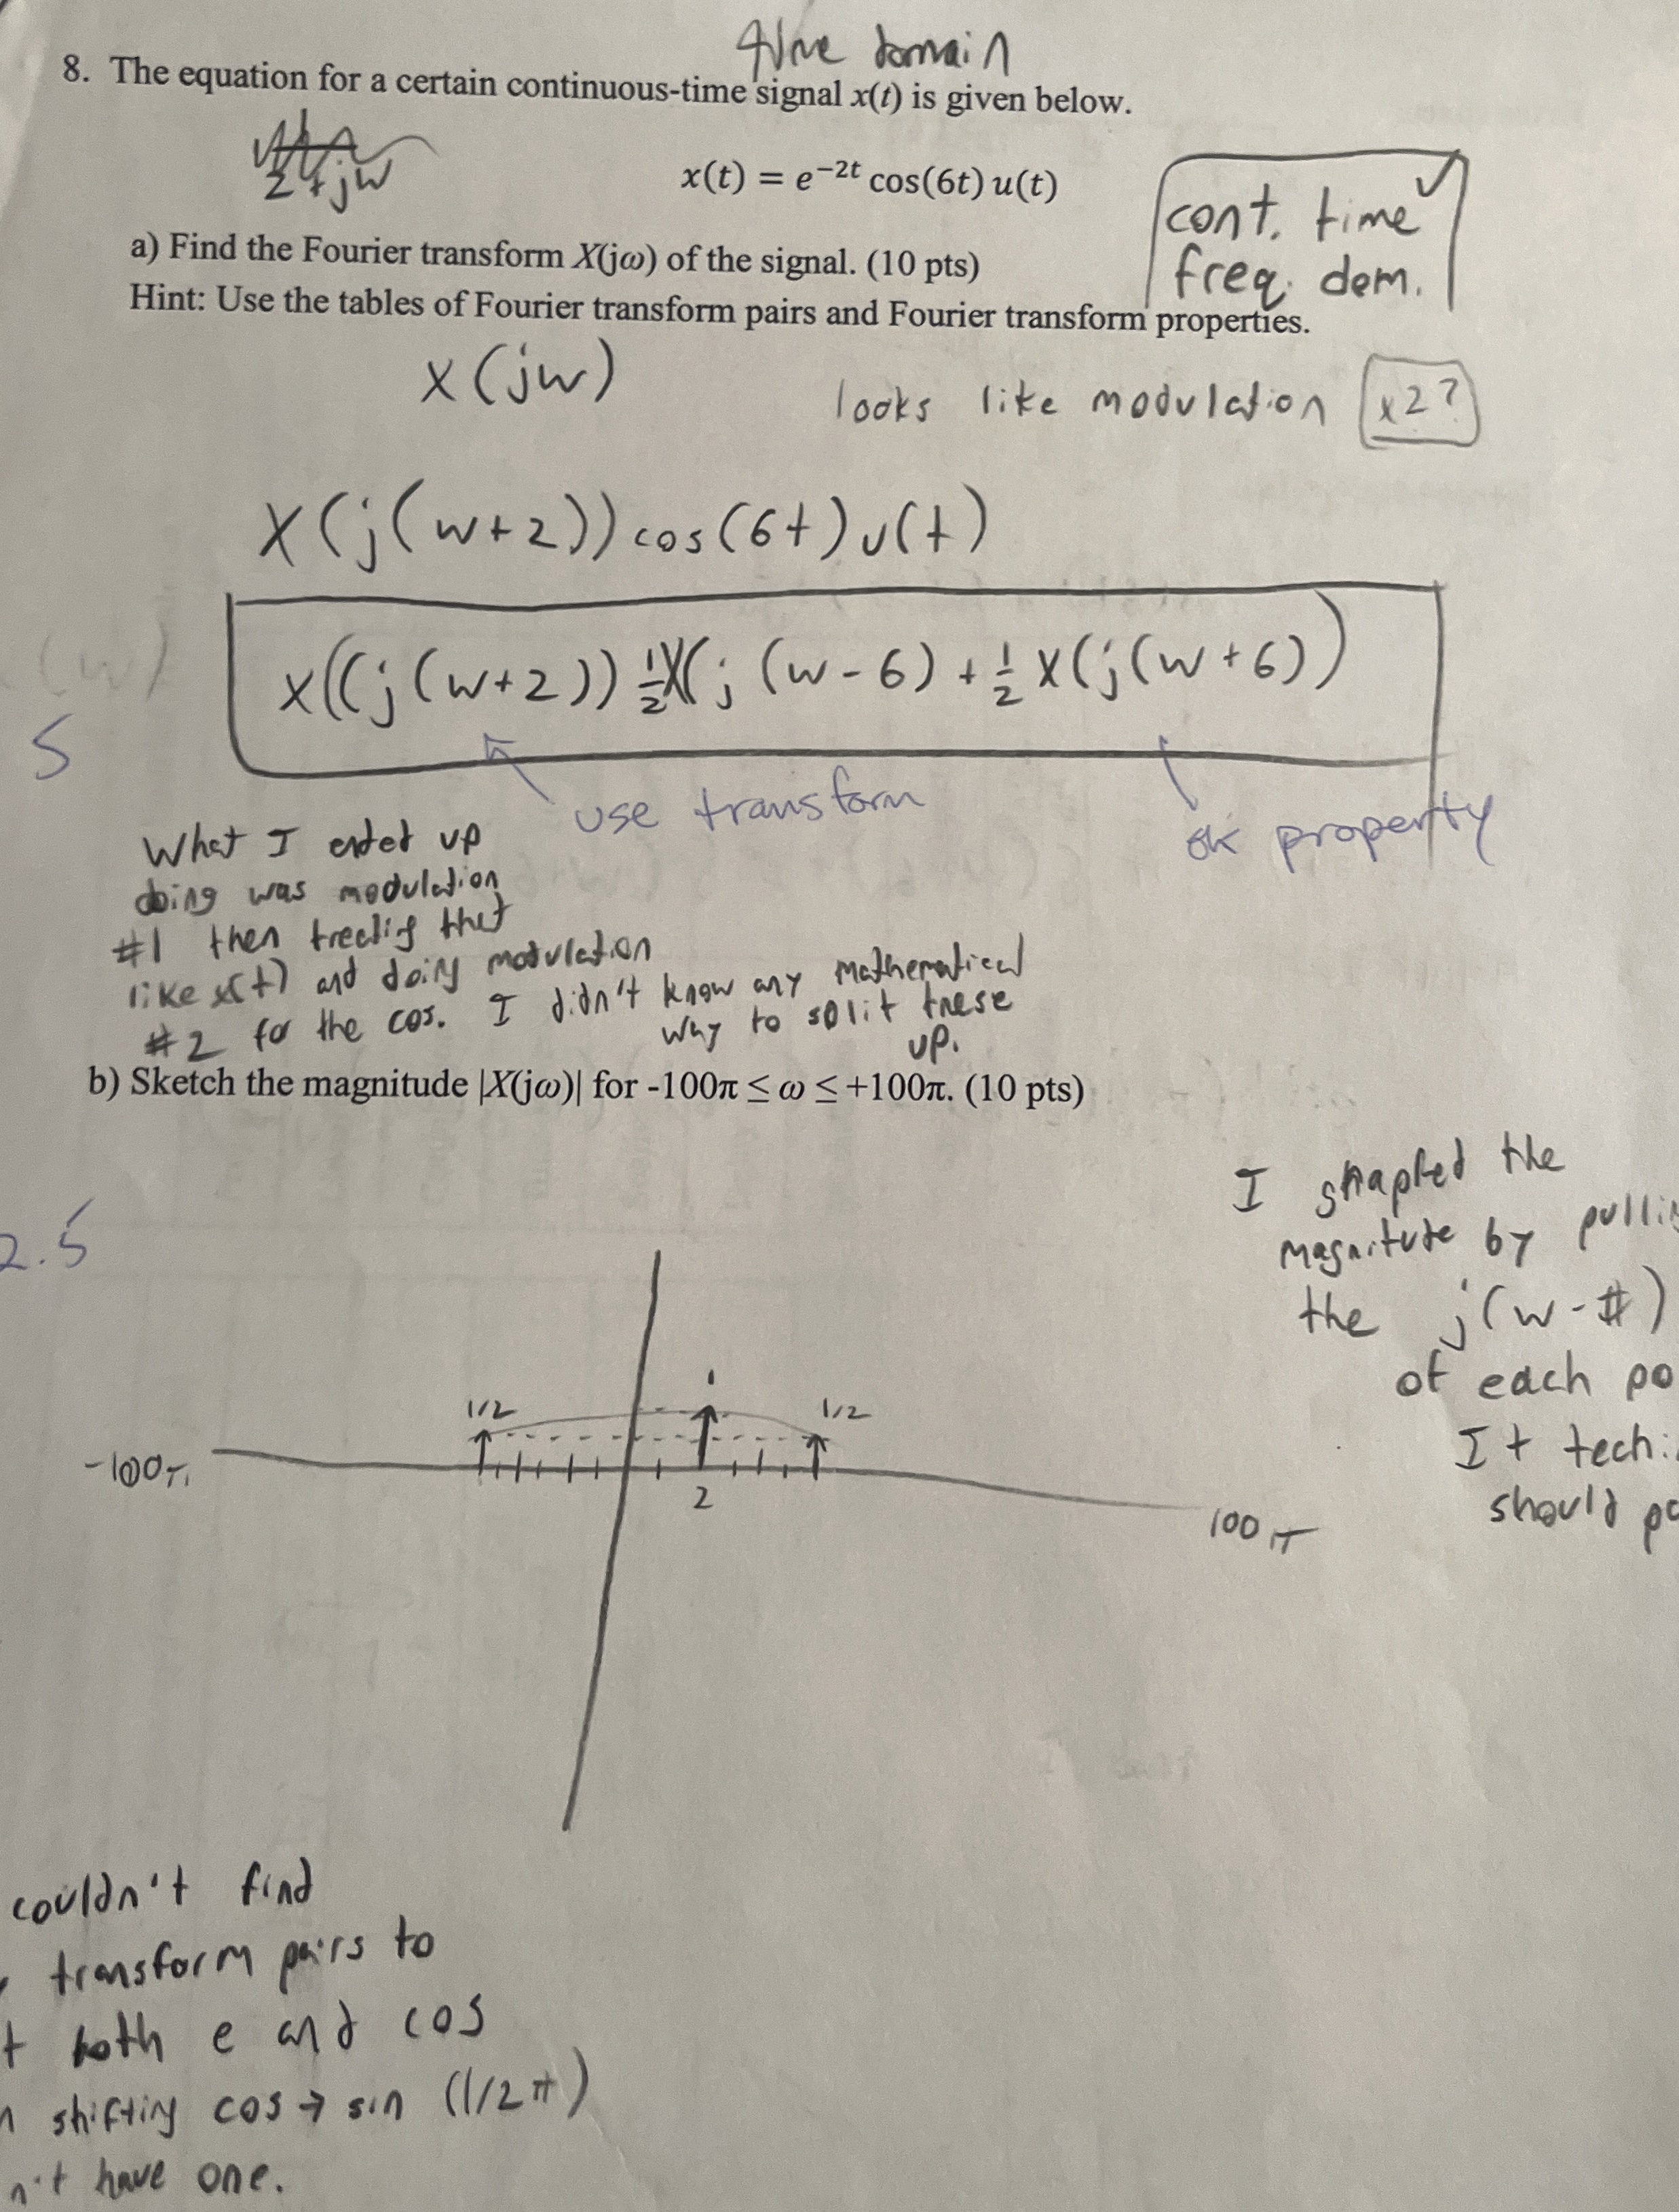 time domain
8. The equation for a certain continuous-time signal x(t) is given below.
2+jw
x(t) = e^{-2t} cos(6t) u(t)
cont. time ✓
freq. dom.
a) Find the Fourier transform X(jω) of the signal. (10 pts)
Hint: Use the tables of Fourier transform pairs and Fourier transform properties.
X(jw)
looks like modulation x2?
X(j(w+2)) cos(6t) u(t)
(w)
X((j(w+2)) 1/2 X(j(w-6) + 1/2 X(j(w+6))
5
use transform
ok property
What I ended up
doing was modulation
#1 then treating that
like x(t) and doing modulation
#2 for the cos. I didn't know any mathematical
way to split these
up.
b) Sketch the magnitude |X(jω)| for -100π ≤ ω ≤ +100π. (10 pts)
2.5
I graphed the
magnitude by pulli
the j(w-#)
of each po
It tech
should po
1/2
1
1/2
-100π
2
100π
couldn't find
transform pairs to
t both e and cos
n shifting cos → sin (1/2π)
n't have one.